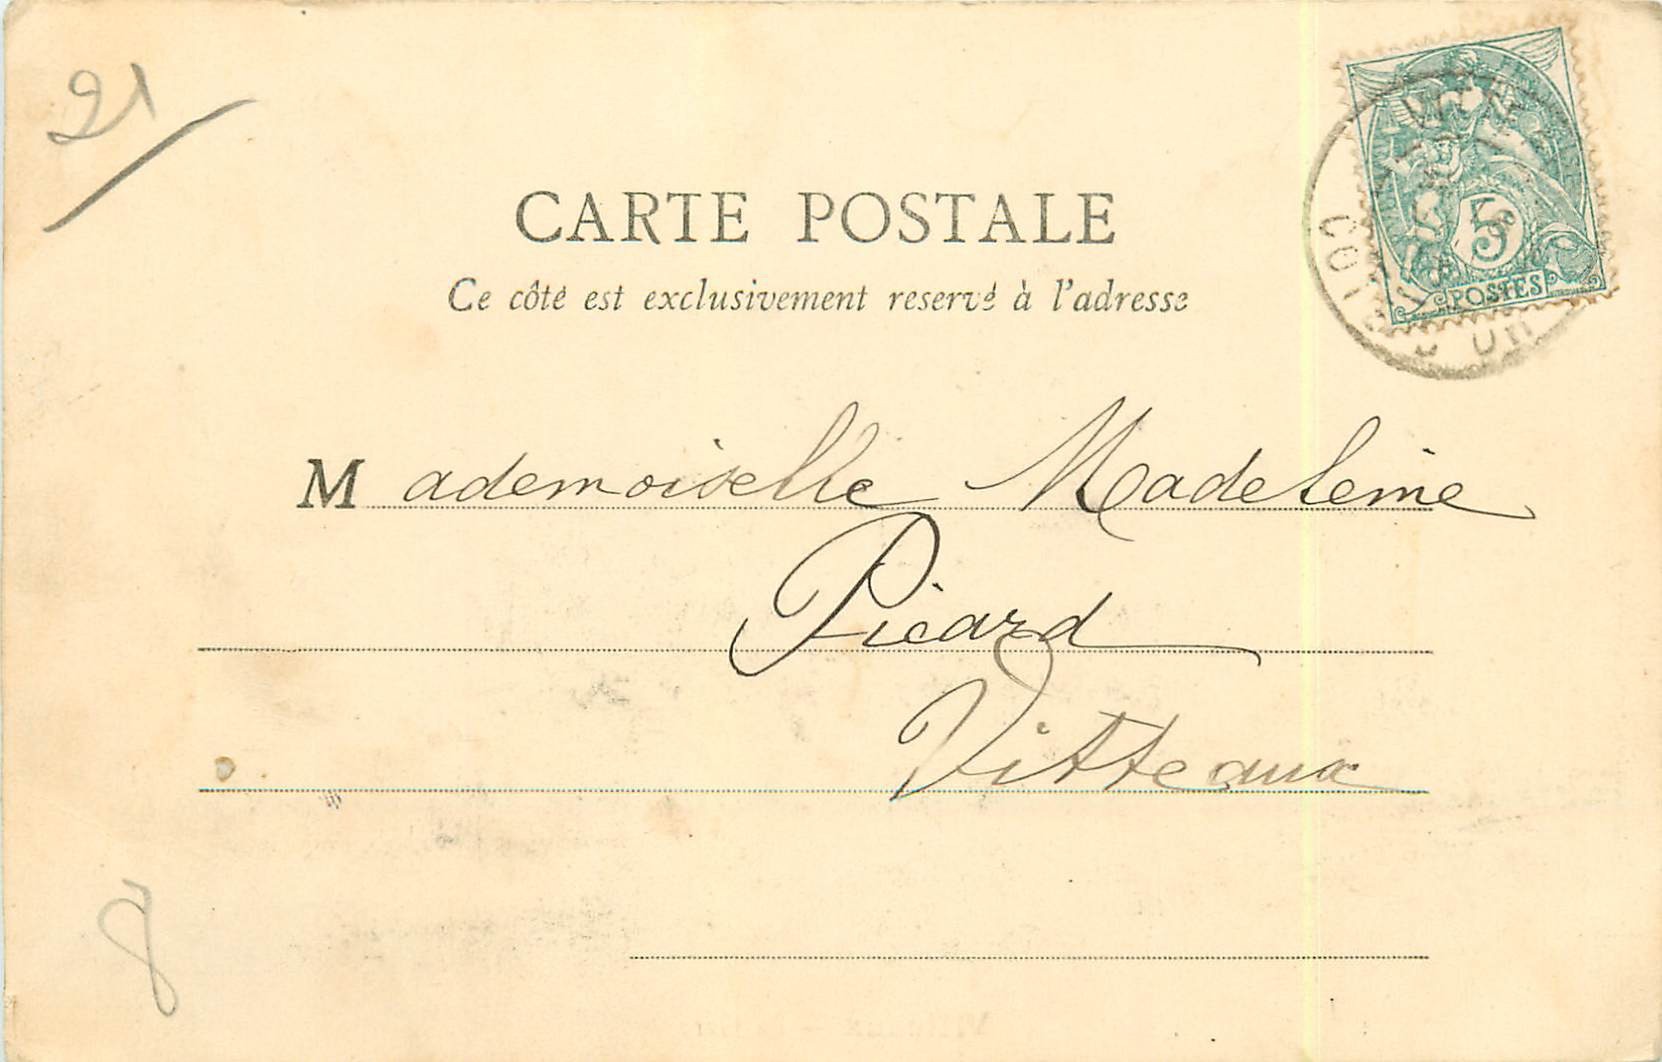 21
CARTE POSTALE
Ce côté est exclusivement reservé à l'adresse
5
POSTES
Mademoiselle Madeleine
Picard
Vitteaux
8